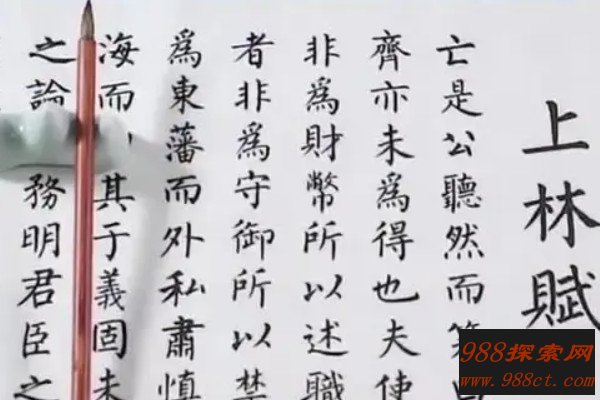 上林賦
亡是公聽然而笑曰
齊亦未為得也夫使
非為財幣所以述職
者非為守御所以禁
為東藩而外私肅慎
海而 其于義固未
之論 務明君臣之
988探索网
www.988ct.com